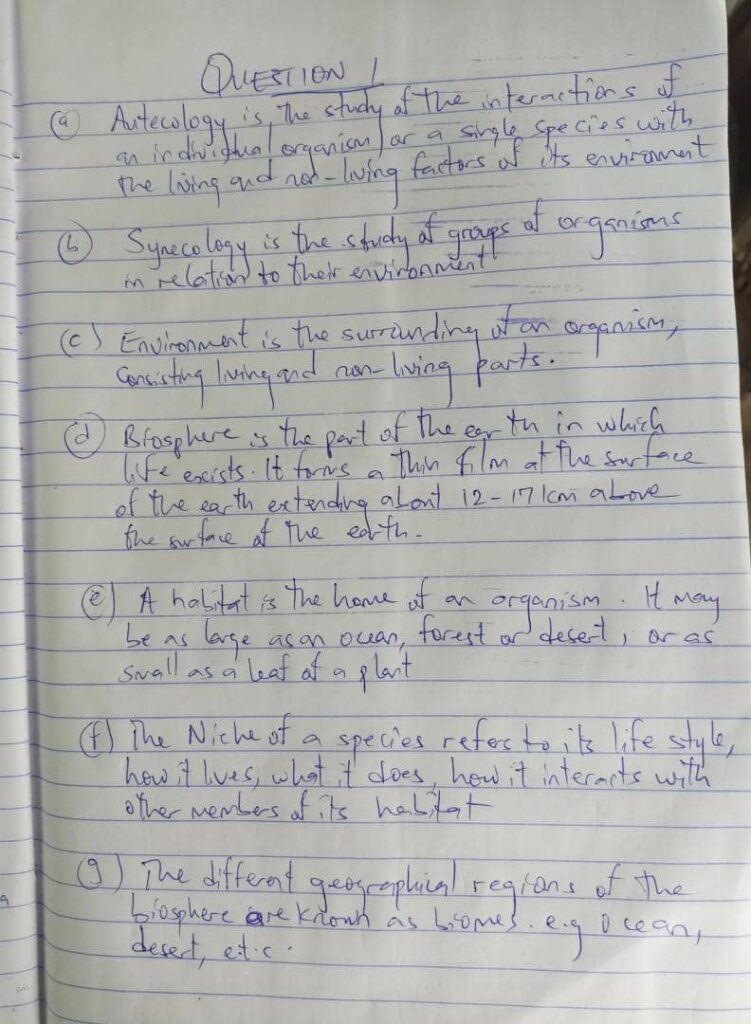 QUESTION 1
(a) Autecology is the study of the interactions of
an individual organism or a single species with
the living and non-living factors of its environment
(b) Synecology is the study of groups of organisms
in relation to their environment
(c) Environment is the surrounding of an organism,
Consisting living and non-living parts.
(d) Biosphere is the part of the earth in which
life exists. It forms a thin film at the surface
of the earth extending about 12-17km above
the surface of the earth.
(e) A habitat is the home of an organism. It may
be as large as an ocean, forest or desert, or as
small as a leaf of a plant
(f) The Niche of a species refers to its life style,
how it lives, what it does, how it interacts with
other members of its habitat
(g) The different geographical regions of the
biosphere are known as biomes. e.g ocean,
desert, e.t.c.